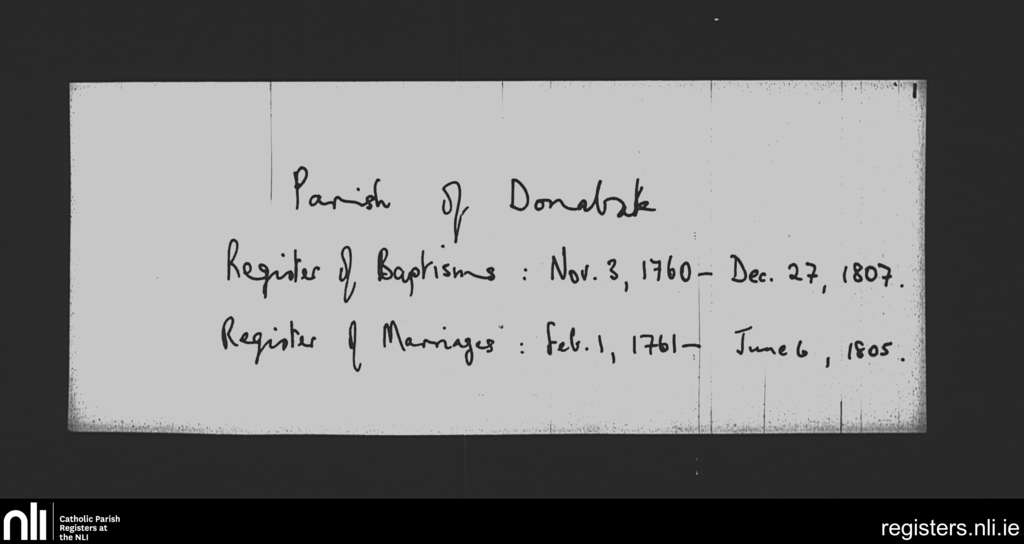 1
Parish of Donabate
Register of Baptisms : Nov. 3, 1760 – Dec. 27, 1807.
Register of Marriages : Feb. 1, 1761 – June 6, 1805.
nli
Catholic Parish
Registers at
the NLI
registers.nli.ie